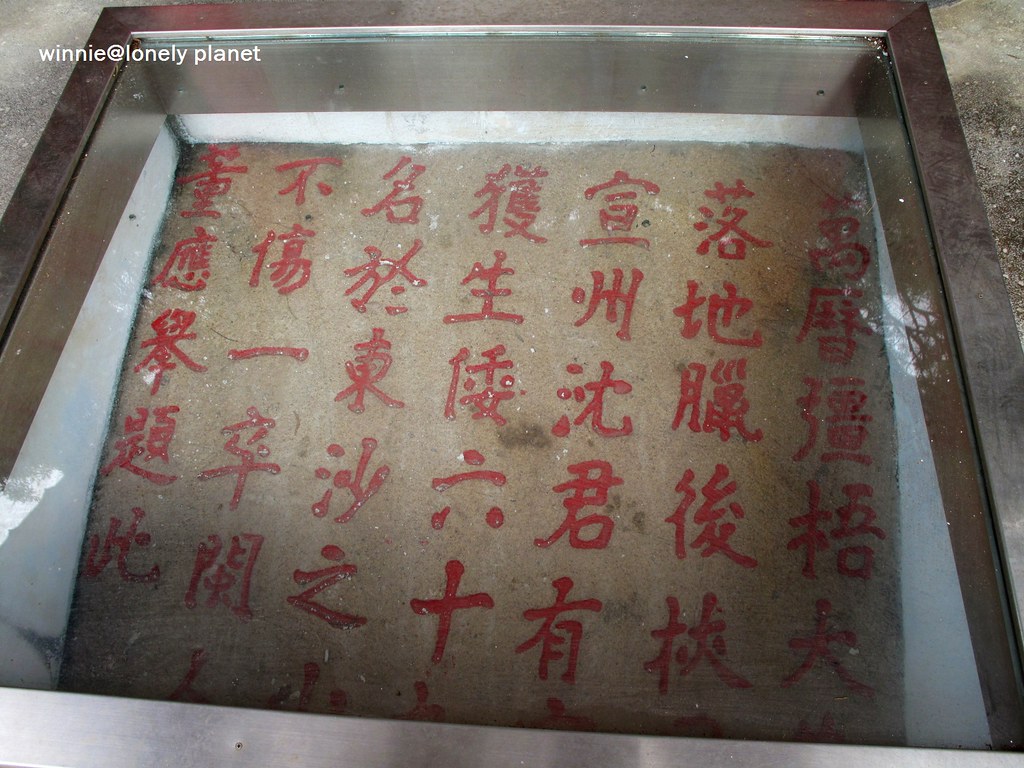 winnie@lonely planet
萬曆彊梧大
落地臘後挾
宣州沈君有
獲生倭六十
名於東沙之山
不傷一卒閩人
董應舉題此